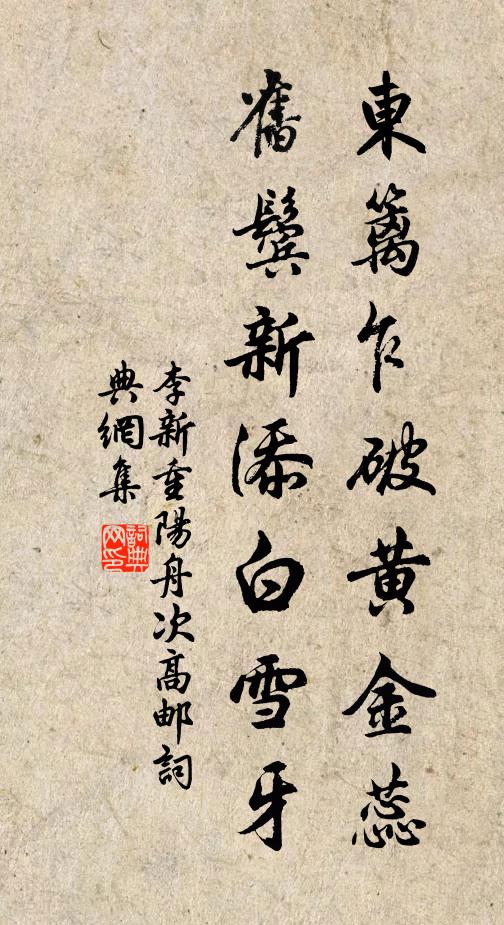 東籬乍破黃金蕊
舊鬢新添白雪牙
李新重陽舟次高邮詞
典網集
詞典
网印